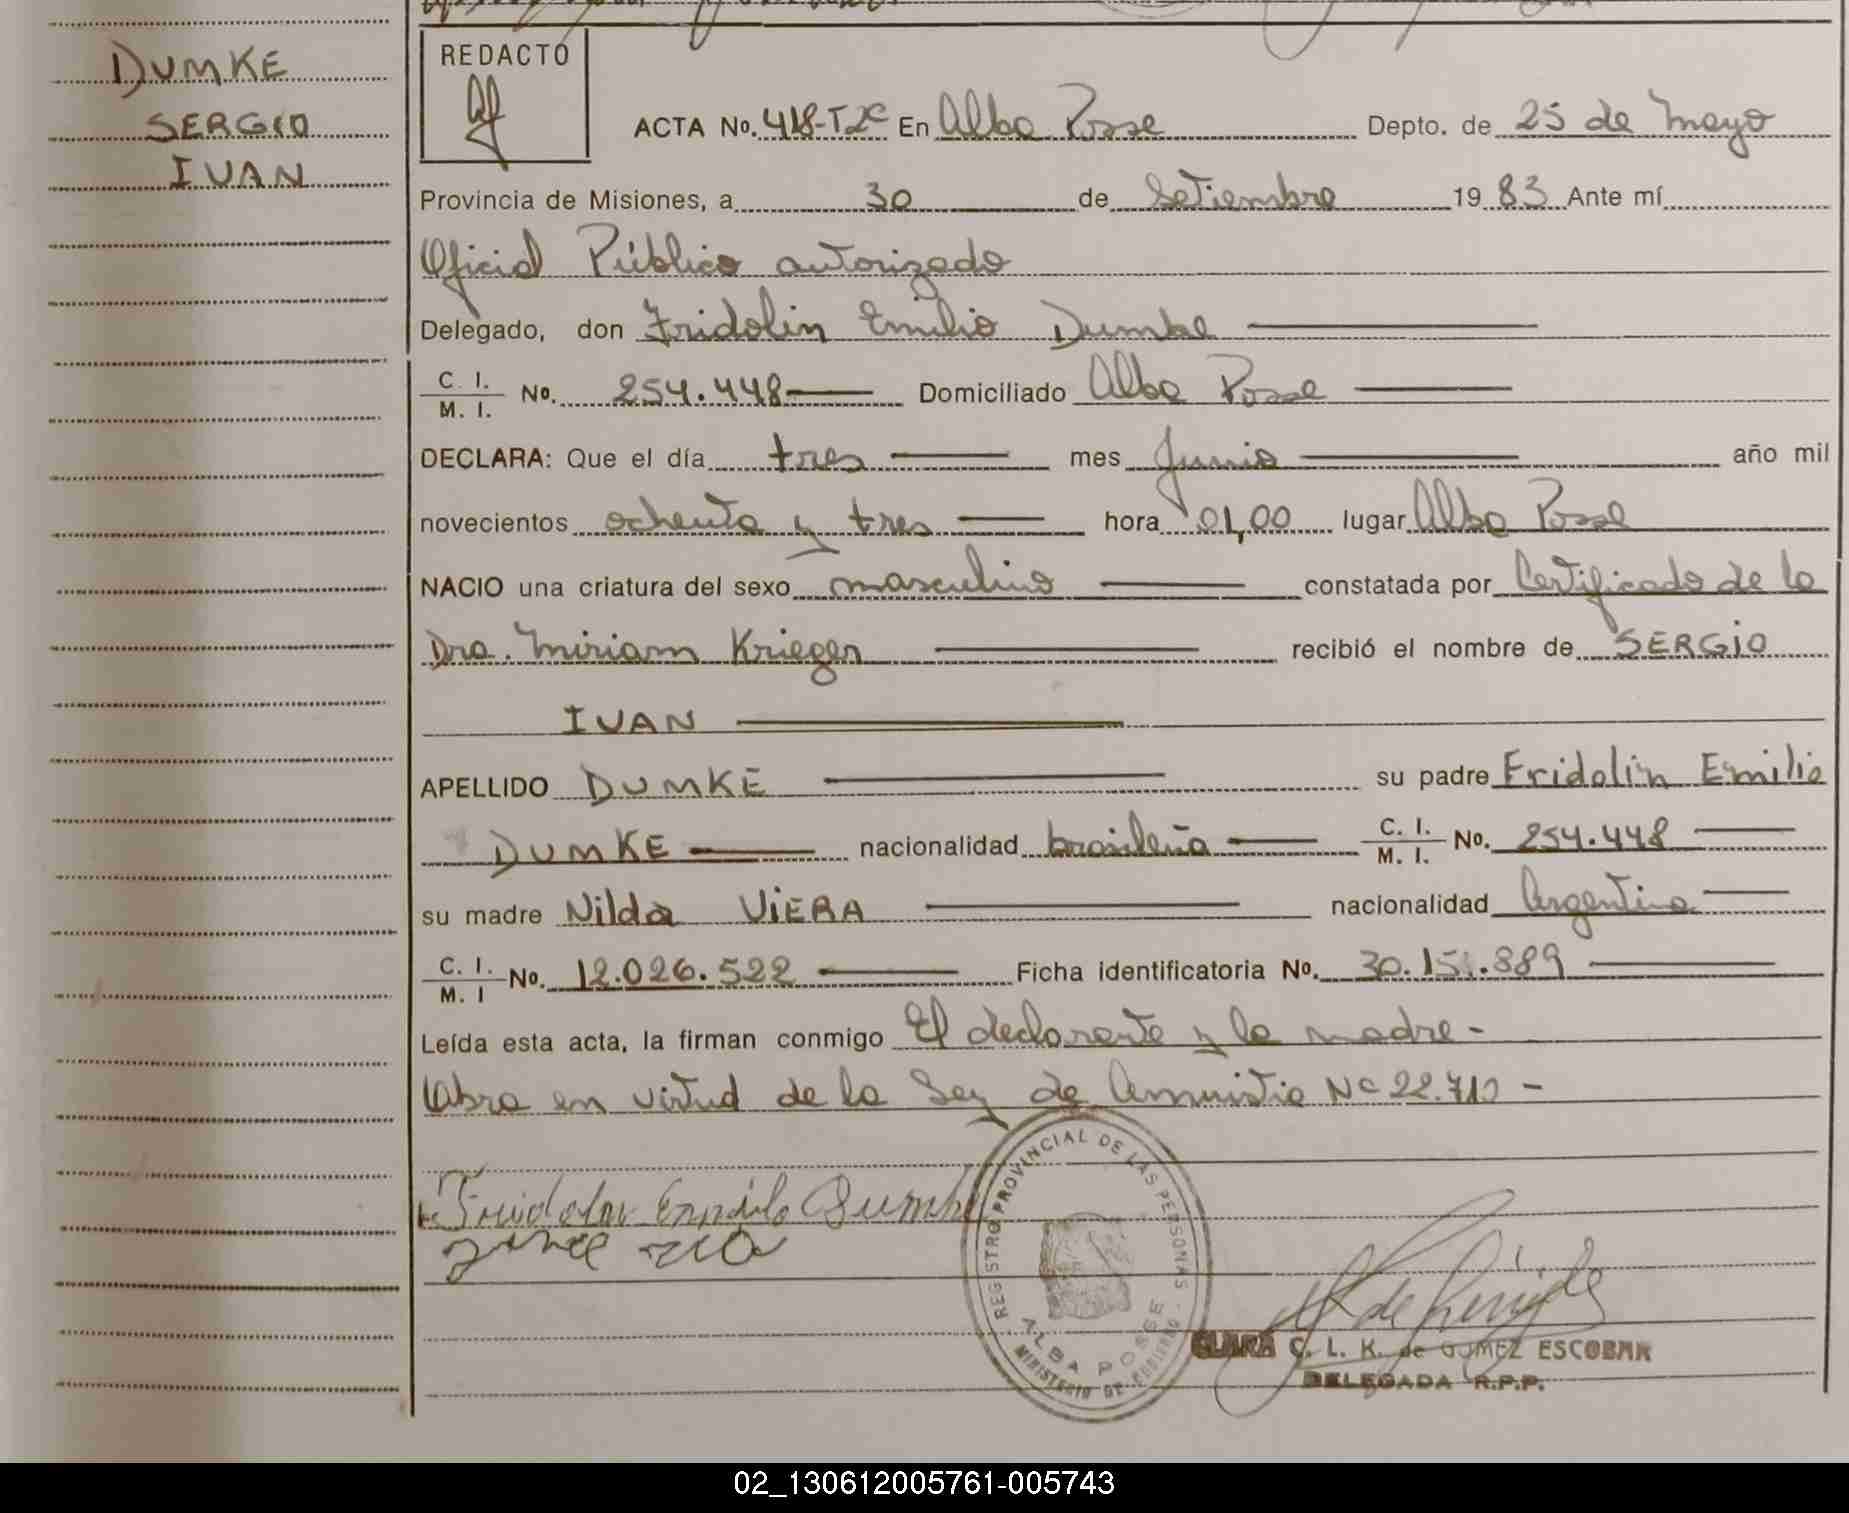 DUMKE
SERGIO
IVAN
REDACTO
ACTA No. 418-T2º En Alba Posse Depto. de 25 de Mayo
Provincia de Misiones, a 30 de Setiembre 1983 Ante mí
Oficial Público autorizado
Delegado, don Fridolin Emilio Dumke
C. I. / M. I. No. 254.448 Domiciliado Alba Posse
DECLARA: Que el día tres mes Junio año mil
novecientos ochenta y tres hora 01,00 lugar Alba Posse
NACIO una criatura del sexo masculino constatada por Certificado de la
Dra. Miriam Krieger recibió el nombre de SERGIO
IVAN
APELLIDO DUMKE su padre Fridolin Emilio
DUMKE nacionalidad brasileña C. I. / M. I. No. 254.448
su madre Nilda ViERA nacionalidad Argentina
C. I. / M. I No. 12.026.522 Ficha identificatoria No. 30.151.889
Leída esta acta, la firman conmigo El declarante y la madre -
Labra en virtud de la Ley de Amnistia Nº 22.710 -
Fridolin Emilio Dumke
REGISTRO PROVINCIAL DE LAS PERSONAS
ALBA POSSE
MINISTERIO DE GOBIERNO
CLARA C. L. K. de GOMEZ ESCOBAR
DELEGADA R.P.P.
02_130612005761-005743